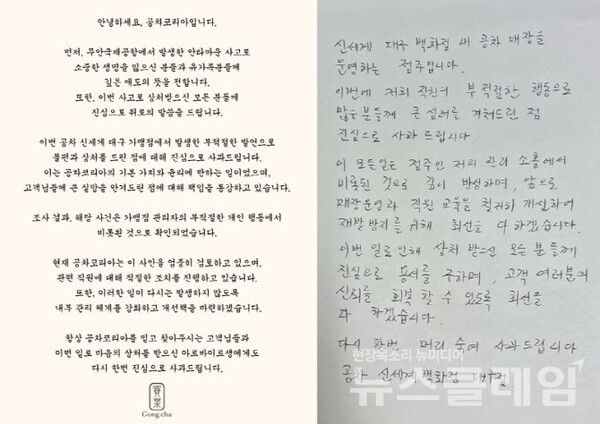 안녕하세요, 공차코리아입니다.
먼저, 무안국제공항에서 발생한 안타까운 사고로
소중한 생명을 잃으신 분들과 유가족분들께
깊은 애도의 뜻을 전합니다.
또한, 이번 사고로 상처받으신 모든 분들께
진심으로 위로의 말씀을 드립니다.
이번 공차 신세계 대구 가맹점에서 발생한 부적절한 발언으로
불편과 상처를 드린 점에 대해 진심으로 사과드립니다.
이는 공차코리아의 기본 가치와 윤리에 반하는 일이었으며,
고객님들께 큰 실망을 안겨드린 점에 대해 책임을 통감하고 있습니다.
조사 결과, 해당 사건은 가맹점 관리자의 부적절한 개인 행동에서
비롯된 것으로 확인되었습니다.
현재 공차코리아는 이 사안을 엄중히 검토하고 있으며,
관련 직원에 대해 적절한 조치를 진행하고 있습니다.
또한, 이러한 일이 다시는 발생하지 않도록
내부 관리 체계를 강화하고 개선책을 마련하겠습니다.
항상 공차코리아를 믿고 찾아주시는 고객님들과
이번 일로 마음의 상처를 받으신 아르바이트생에게도
다시 한번 진심으로 사과드립니다.
貢茶
Gong cha
신세계 대구 백화점 내 공차 매장을
운영하는 점주입니다.
이번에 저희 직원의 부적절한 행동으로
많은 분들께 큰 심려를 끼쳐드린 점
진심으로 사과 드립니다
이 모든일은 점주인 저의 관리 소홀에서
비롯된 것으로 깊이 반성하며, 앞으로
매장운영과 직원 교육을 철저히 개선하여
재발 방지를 위해 최선을 다 하겠습니다.
이번 일로 인해 상처 받으신 모든 분들께
진심으로 용서를 구하며, 고객 여러분의
신뢰를 회복 할 수 있도록 최선을
다 하겠습니다.
다시 한번 머리 숙여 사과드립니다
공차 신세계백화점 대구점
현장목소리 뉴미디어
뉴스클레임